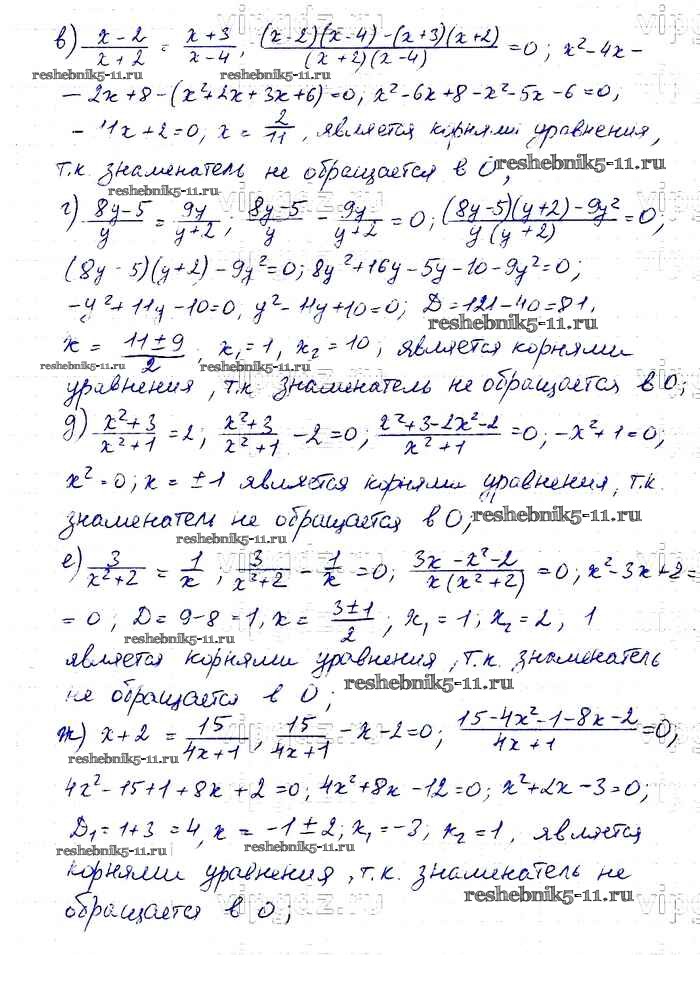 в) (x-2)/(x+2) = (x+3)/(x-4), ((x-2)(x-4)-(x+3)(x+2))/((x+2)(x-4)) = 0; x²-4x-
reshebnik5-11.ru
reshebnik5-11.ru
-2x+8-(x²+2x+3x+6)=0, x²-6x+8-x²-5x-6=0,
-11x+2=0, x = 2/11, является корнями уравнения,
т.к. знаменатель не обращается в 0;
reshebnik5-11.ru
reshebnik5-11.ru
г) (8y-5)/y = 9y/(y+2); (8y-5)/y - 9y/(y+2) = 0; ((8y-5)(y+2)-9y²)/(y(y+2)) = 0;
(8y-5)(y+2)-9y²=0; 8y²+16y-5y-10-9y²=0;
-y²+11y-10=0, y²-11y+10=0; D=121-40=81,
reshebnik5-11.ru
x = (11±9)/2, x₁=1, x₂=10; является корнями
reshebnik5-11.ru
уравнения, т.к. знаменатель не обращается в 0;
д) (x²+3)/(x²+1) = 2; (x²+3)/(x²+1) - 2 = 0; (x²+3-2x²-2)/(x²+1) = 0; -x²+1=0;
x²=0; x = ±1 является корнями уравнения, т.к.
знаменатель не обращается в 0;
reshebnik5-11.ru
reshebnik5-11.ru
е) 3/(x²+2) = 1/x, 3/(x²+2) - 1/x = 0; (3x-x²-2)/(x(x²+2)) = 0; x²-3x+2=
=0; D=9-8=1, x = (3±1)/2; x₁=1; x₂=2, 1
reshebnik5-11.ru
является корнями уравнения, т.к. знаменатель
не обращается в 0;
reshebnik5-11.ru
ж) x+2 = 15/(4x+1), 15/(4x+1) - x-2=0; (15-4x²-1-8x-2)/(4x+1) = 0,
reshebnik5-11.ru
4x²-15+1+8x+2=0; 4x²+8x-12=0; x²+2x-3=0;
D₁=1+3=4, x = -1±2; x₁=-3; x₂=1, является
reshebnik5-11.ru
reshebnik5-11.ru
корнями уравнения, т.к. знаменатель не
reshebnik5-11.ru
обращается в 0;
vipgdz.ru